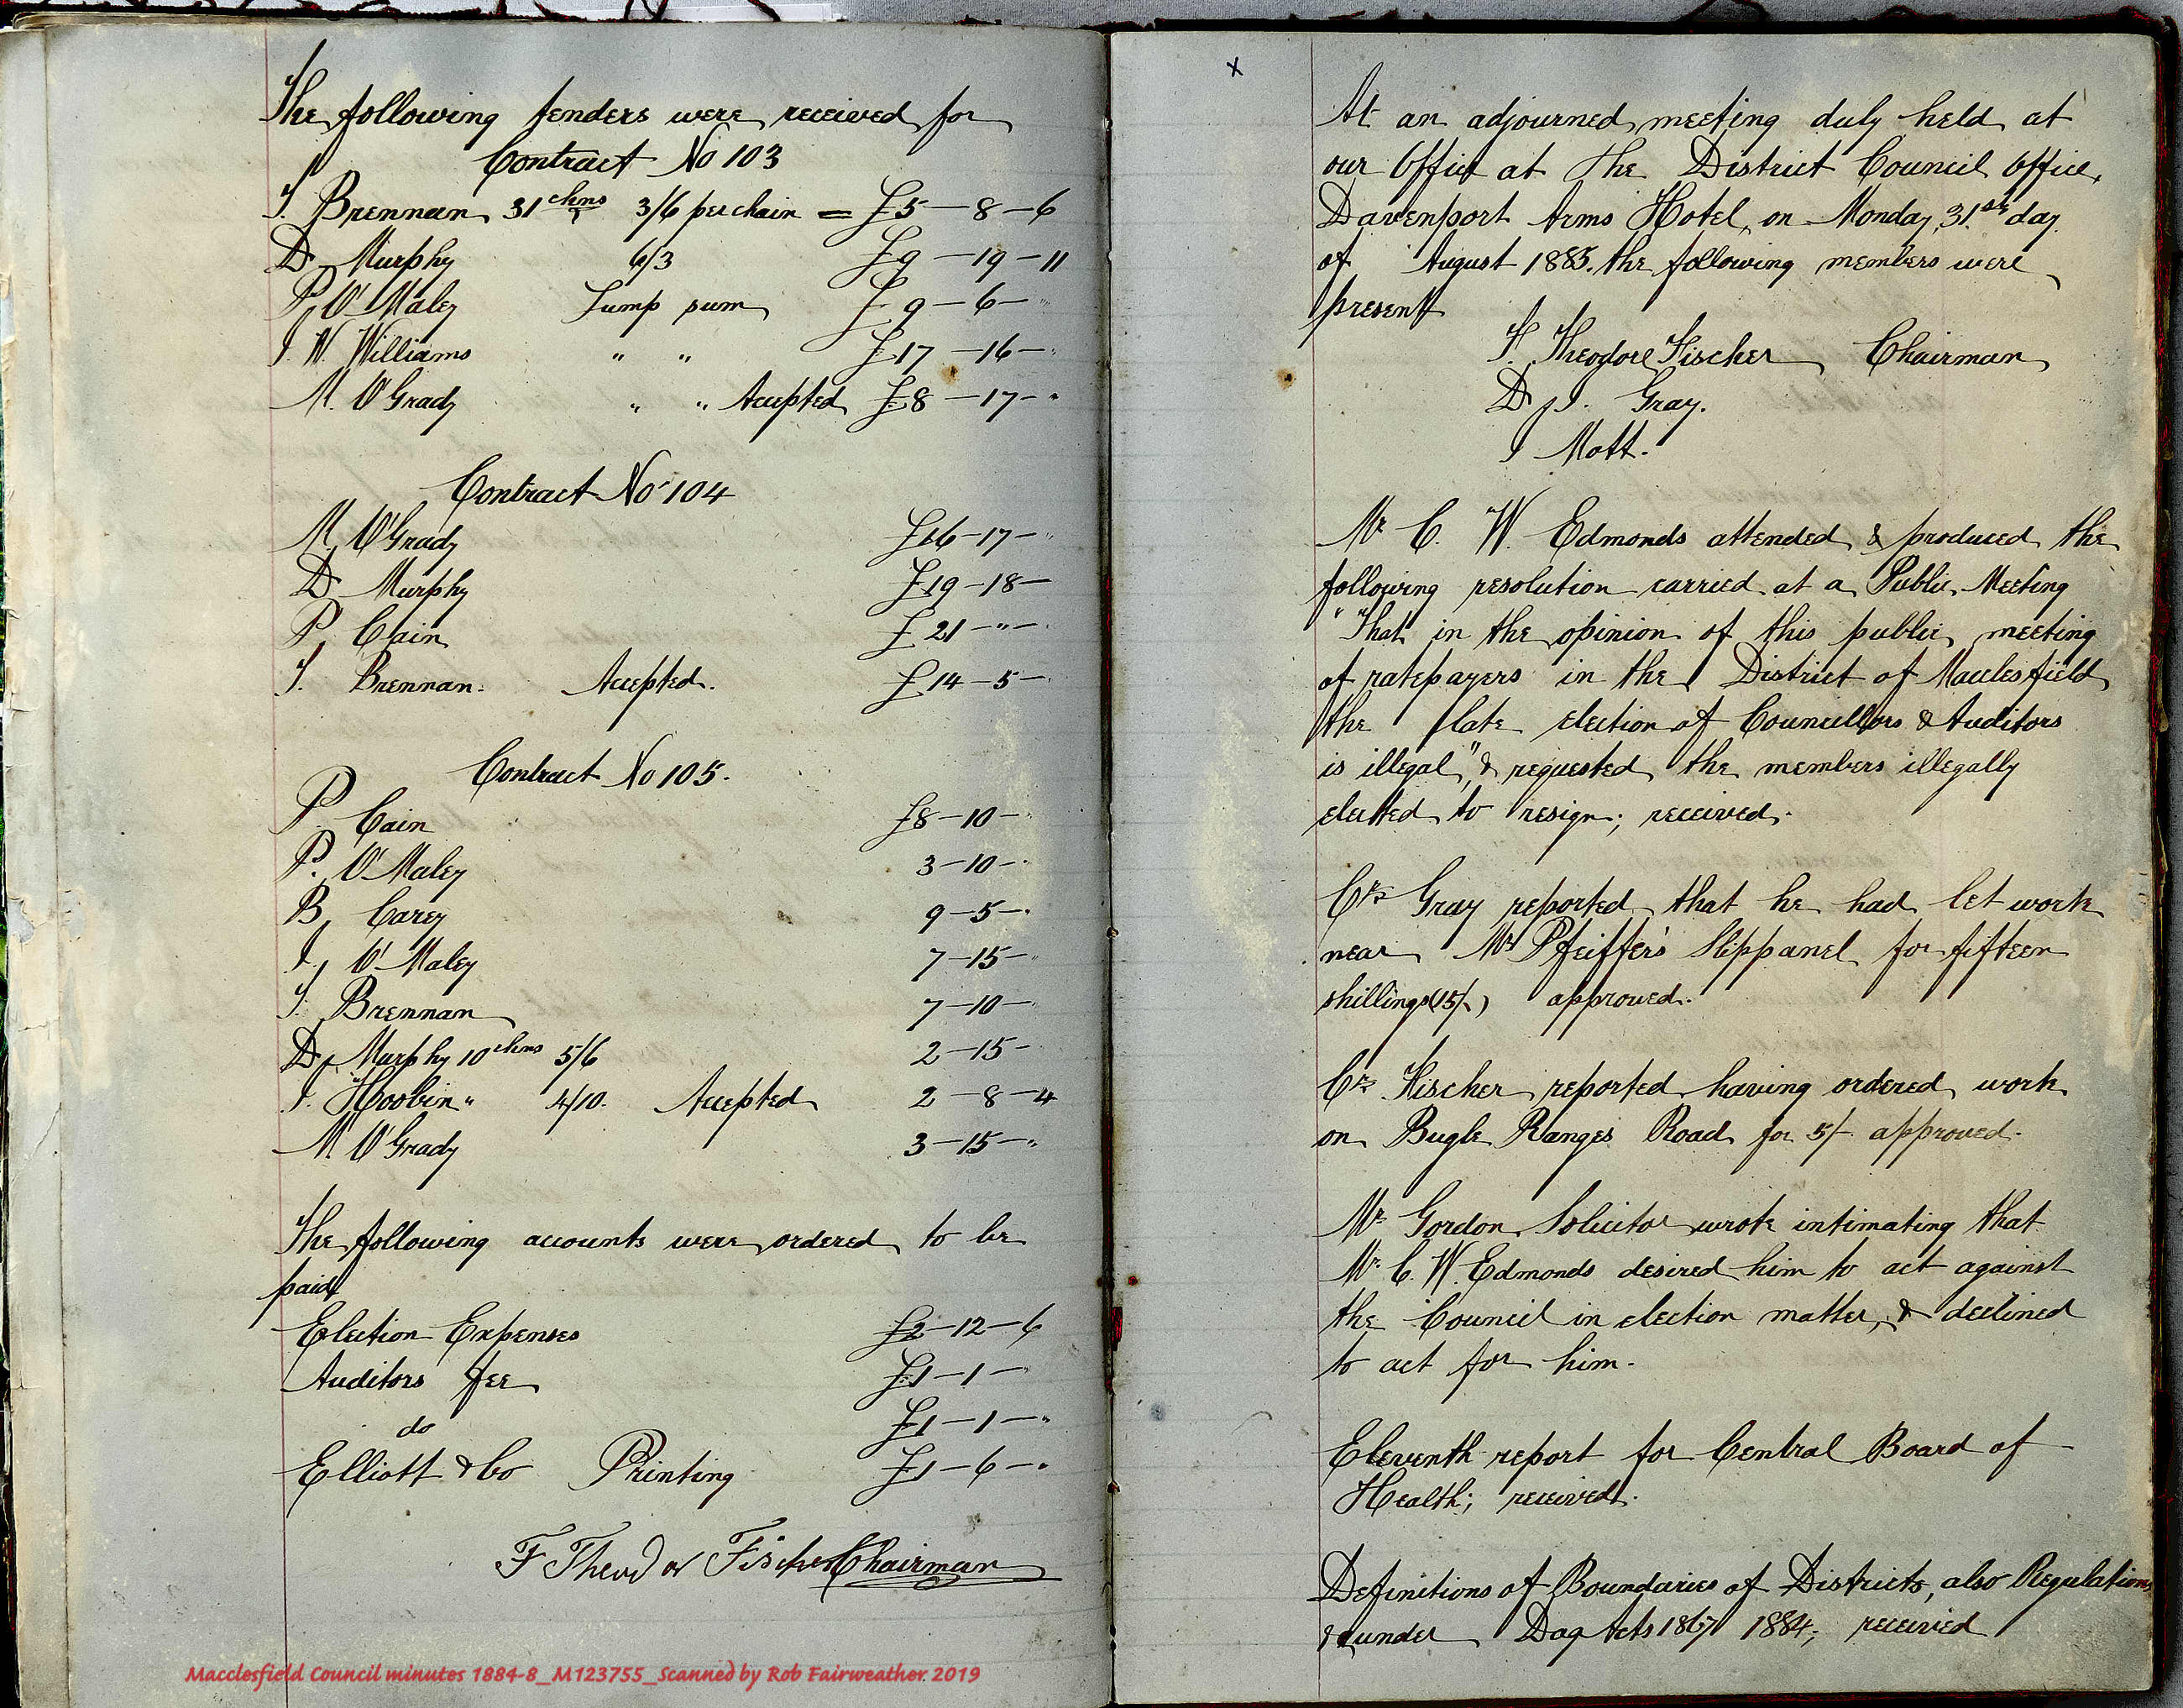 The following tenders were received for
Contract No 103
T. Brennan 31 chns 3/6 per chain = £5-8-6
D Murphy 6/3 £9-19-11
P O'Maley Lump sum £9-6-"
J. W. Williams " " £17-16-"
M. O'Grady " " Accepted £8-17-"
Contract No 104
M O'Grady £16-17-"
D Murphy £19-18-
P Cain £21-"-
T. Brennan. Accepted. £14-5-
Contract No 105.
P. Cain £8-10-"
P. O'Maley 3-10-"
B Carey 9-5-"
J O'Maley 7-15-"
T. Brennan 7-10-"
D Murphy 10 chns 5/6 2-15-
J. Hoobin " 4/10. Accepted 2-8-4
M O'Grady 3-15-"
The following accounts were ordered to be
paid
Election Expenses £2-12-6
Auditors fee £1-1-"
do £1-1-"
Elliott & Co Printing £1-6-"
F Theodor Fischer Chairman
Macclesfield Council minutes 1884-8_M123755_Scanned by Rob Fairweather 2019
x
At an adjourned meeting duly held at
our Office at The District Council Office,
Davenport Arms Hotel, on Monday, 31st day
of August 1885. the following members were
present
F. Theodore Fischer Chairman
D J. Gray.
J Mott.
Mr C. W. Edmonds attended & produced the
following resolution carried at a Public Meeting
"That in the opinion of this public meeting
of ratepayers in the District of Macclesfield
the late election of Councillors & Auditors
is illegal", & requested the members illegally
elected to resign; received.
Crs Gray reported that he had let work
near Mr Pfeiffer's Slippanel for fifteen
shillings (15/-) approved.
Crs Fischer reported having ordered work
on Bugle Ranges Road for 5/- approved.
Mr Gordon Solicitor wrote intimating that
Mr C. W. Edmonds desired him to act against
the Council in election matter, & declined
to act for him.
Eleventh report for Central Board of
Health; received.
Definitions of Boundaries of Districts, also Regulations
under Dog Acts 1867 1884; received